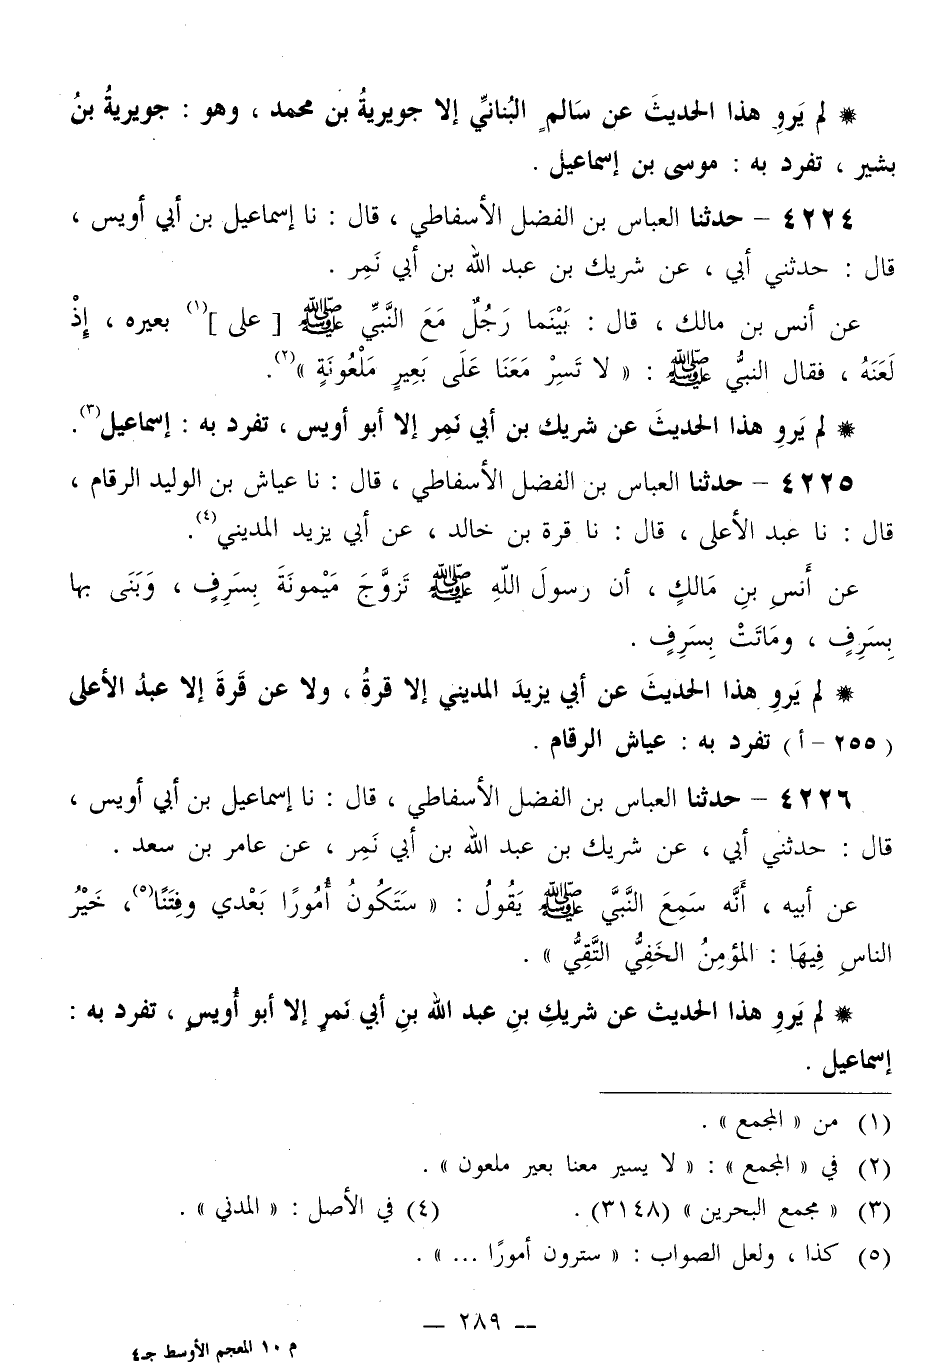 * لم يَروِ هذا الحديثَ عن سَالمٍ البُنانيِّ إلا جويريةُ بن محمد ، وهو : جويريةُ بنُ
بشير ، تفرد به : موسى بن إسماعيل .
٤٢٢٤ – حدثنا العباس بن الفضل الأسفاطي ، قال : نا إسماعيل بن أبي أويس ،
قال : حدثني أبي ، عن شريك بن عبد الله بن أبي نَمِر .
عن أنس بن مالك ، قال : بَيْنَما رَجُلٌ مَعَ النَّبيِّ ﷺ [ على ](١) بعيره ، إِذْ
لَعَنَهُ ، فقال النبيُّ ﷺ : « لا تَسِرْ مَعَنَا عَلَى بَعِيرٍ مَلْعُونَةٍ »(٢).
* لم يَروِ هذا الحديثَ عن شريك بن أبي نَمِر إلا أبو أويس ، تفرد به : إسماعيل(٣).
٤٢٢٥ – حدثنا العباس بن الفضل الأسفاطي ، قال : نا عياش بن الوليد الرقام ،
قال : نا عبد الأعلى ، قال : نا قرة بن خالد ، عن أبي يزيد المديني(٤).
عن أَنسِ بنِ مَالكٍ ، أن رسولَ اللّهِ ﷺ تَزوَّجَ مَيْمونَةَ بِسَرِفٍ ، وَبَنَى بها
بِسَرِفٍ ، ومَاتَتْ بِسَرِفٍ .
* لم يَروِ هذا الحديثَ عن أبي يزيدَ المديني إلا قرةُ ، ولا عن قَرةَ إلا عبدُ الأعلى
( ٢٥٥ – أ ) تفرد به : عياش الرقام .
٤٢٢٦ – حدثنا العباس بن الفضل الأسفاطي ، قال : نا إسماعيل بن أبي أويس ،
قال : حدثني أبي ، عن شريك بن عبد الله بن أبي نَمِر ، عن عامر بن سعد .
عن أبيه ، أَنَّه سَمِعَ النَّبيَّ ﷺ يَقُولُ : « سَتَكُونُ أُمُورًا بَعْدي وفِتَنًا(٥)، خَيْرُ
الناسِ فِيهَا : المؤمِنُ الخَفِيُّ التَّقِيُّ » .
* لم يَروِ هذا الحديث عن شريكِ بنِ عبد الله بنِ أبي نَمرٍ إلا أبو أُويسٍ ، تفرد به :
إسماعيل .
(١) من « المجمع » .
(٢) في « المجمع » : « لا يسير معنا بعير ملعون » .
(٣) « مجمع البحرين » (٣١٤٨) . (٤) في الأصل : « المدني » .
(٥) كذا ، ولعل الصواب : « سترون أمورًا ... » .
— ٢٨٩ —
م ١٠ المعجم الأوسط جـ٤